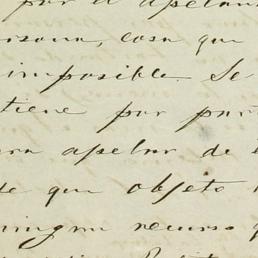 por el apelan
rsona, cosa que
imposible. Se
tiene por par
ra apelar de l
de que objeto
ningun recurso q